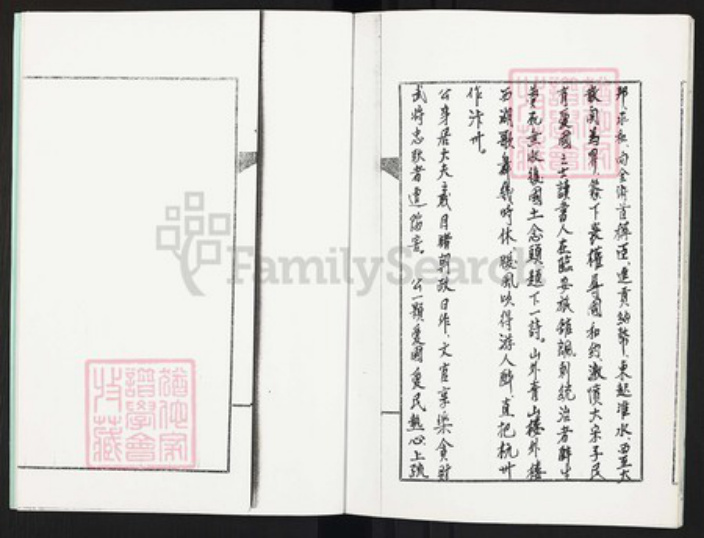 邦求和向金俯首稱臣進貢納幣東起淮水西至大
散関為界簽下喪權辱國和約激憤大宋子民
有愛國之士讀書人在臨安旅館諷刺統治者醉生
夢死無收復國土念頭題下一詩。山外青山樓外樓
西湖歌舞幾時休暖風吹得游人醉直把杭州
作汴州。
公身居大夫之職目睹朝政日非文官享樂貪財
武將忠耿者遭陷害。公一顆愛國愛民熱心上疏
FamilySearch